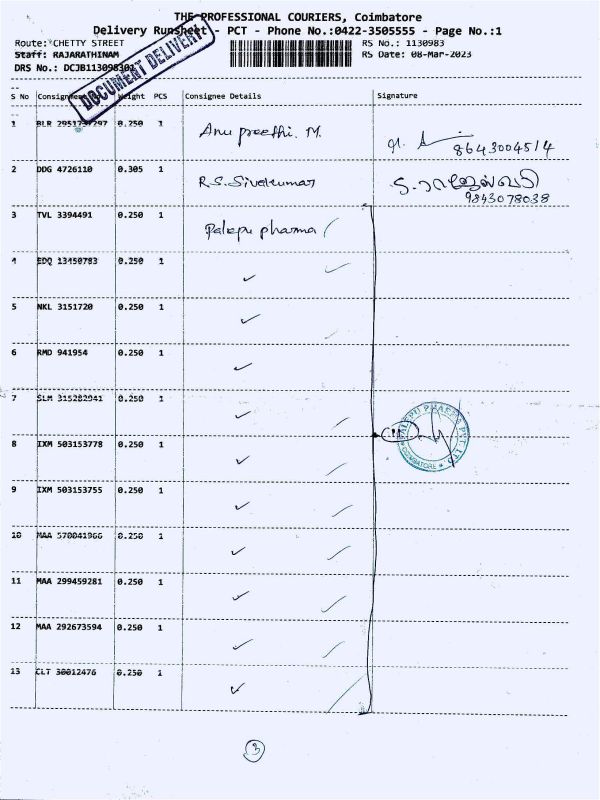 THE PROFESSIONAL COURIERS, Coimbatore
Delivery Runsheet - PCT - Phone No.:0422-3505555 - Page No.:1
Route: CHETTY STREET
RS No.: 1130983
Staff: RAJARATHINAM
RS Date: 08-Mar-2023
DRS No.: DCJB113098301
DOCUMENT DELIVERY
S No Consignment No. Weight PCS Consignee Details Signature
1 BLR 0.250 1 Anu preethi. M. 8643004514
2 DDG 4726110 0.305 1 R.S. Sivakumar
9843078038
3 TVL 3394491 0.250 1 Palepu pharma
4 EDQ 13450783 0.250 1 ✓
5 NKL 3151720 0.250 1 ✓
6 RMD 941954 0.250 1 ✓
7 SLM 315282941 0.250 1 ✓
8 IXM 503153778 0.250 1 ✓
9 IXM 503153755 0.250 1 ✓
10 MAA 570041966 0.250 1 ✓
11 MAA 299459281 0.250 1 ✓
12 MAA 292673594 0.250 1 ✓
13 CLT 30012476 0.250 1 ✓
PALEPU PHARMA PVT LTD
COIMBATORE
3